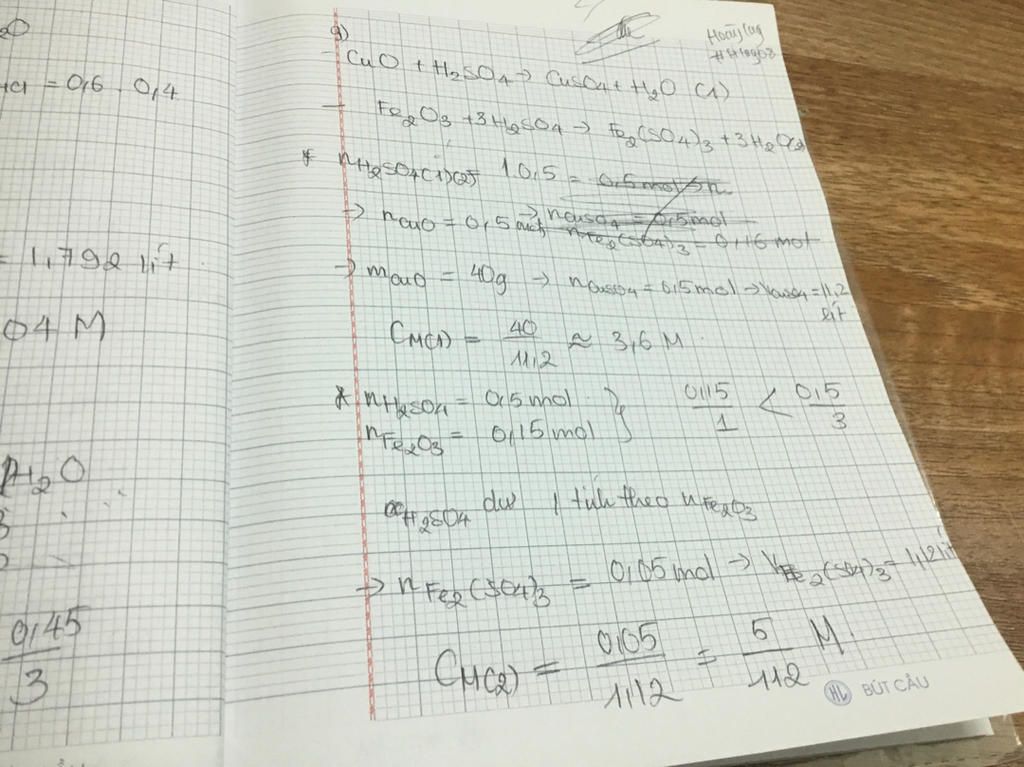 HCl = 0,6 0,4
= 1,792 lít
04 M
H2O
0,45
3
Hoài Lag
g)
CuO + H2SO4 → CuSO4 + H2O (1)
Fe2O3 + 3H2SO4 → Fe2(SO4)3 + 3H2O(2)
* nH2SO4(1)(2) 1 0,5 = 0,5 mol
→ nCuO = 0,5 mol → nCuSO4 = 0,5 mol
nFe2(SO4)3 = 0,16 mol
→ mCuO = 40g → nCuSO4 = 0,5 mol → VCuSO4 = 11,2 lít
CM(1) = 40/11,2 ≈ 3,6 M
* nH2SO4 = 0,5 mol } 0,15/1 < 0,5/3
nFe2O3 = 0,15 mol
H2SO4 dư, tính theo nFe2O3
→ nFe2(SO4)3 = 0,05 mol → VFe2(SO4)3 = 1,12 lít
CM(2) = 0,05/1,12 = 5/112 M.
HL BÚT CÂU